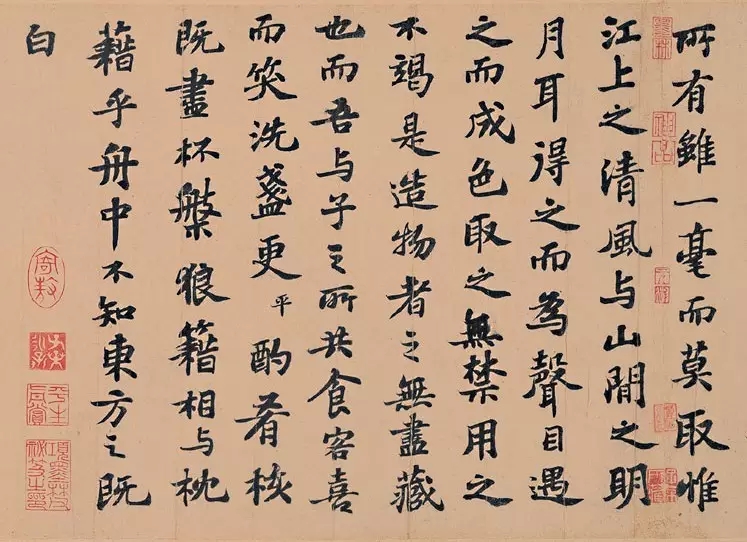 所有雖一毫而莫取惟
江上之清風与山閒之明
月耳得之而為聲目遇
之而成色取之無禁用之
不竭是造物者之無盡藏
也而吾与子之所共食客喜
而笑洗盞更平酌肴核
既盡杯槃狼籍相与枕
藉乎舟中不知東方之既
白
神品
寄敖
平生真賞
項墨林祕笈之印